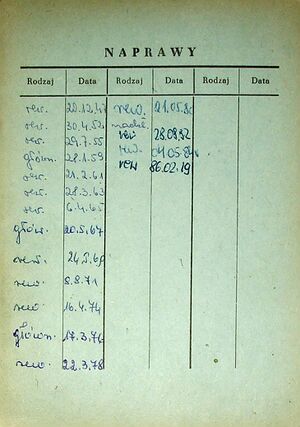 NAPRAWY
Rodzaj Data Rodzaj Data Rodzaj Data
rew. 20.12.47 rew. 21.05.80
rew. 30.4.52
rew. 29.7.55 rew 28.09.82
główn. 28.1.59 rew. 04.05.84
rew. 21.2.61 rew 86.02.19
rew. 28.3.63
rew. 6.4.65
główn. 20.5.67
rew. 24.5.69
rew. 8.8.71
rew. 16.4.74
główn. 17.3.76
rew. 22.3.78